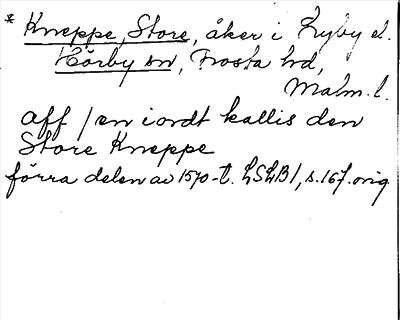 * Kneppe, Store, åker i Kyby et.
Hörby sn, Frosta hd,
Malm. l.
aff / en iordt kallis den
Store Kneppe
förra delen av 1570-t. LSLB 1, s. 167. orig.